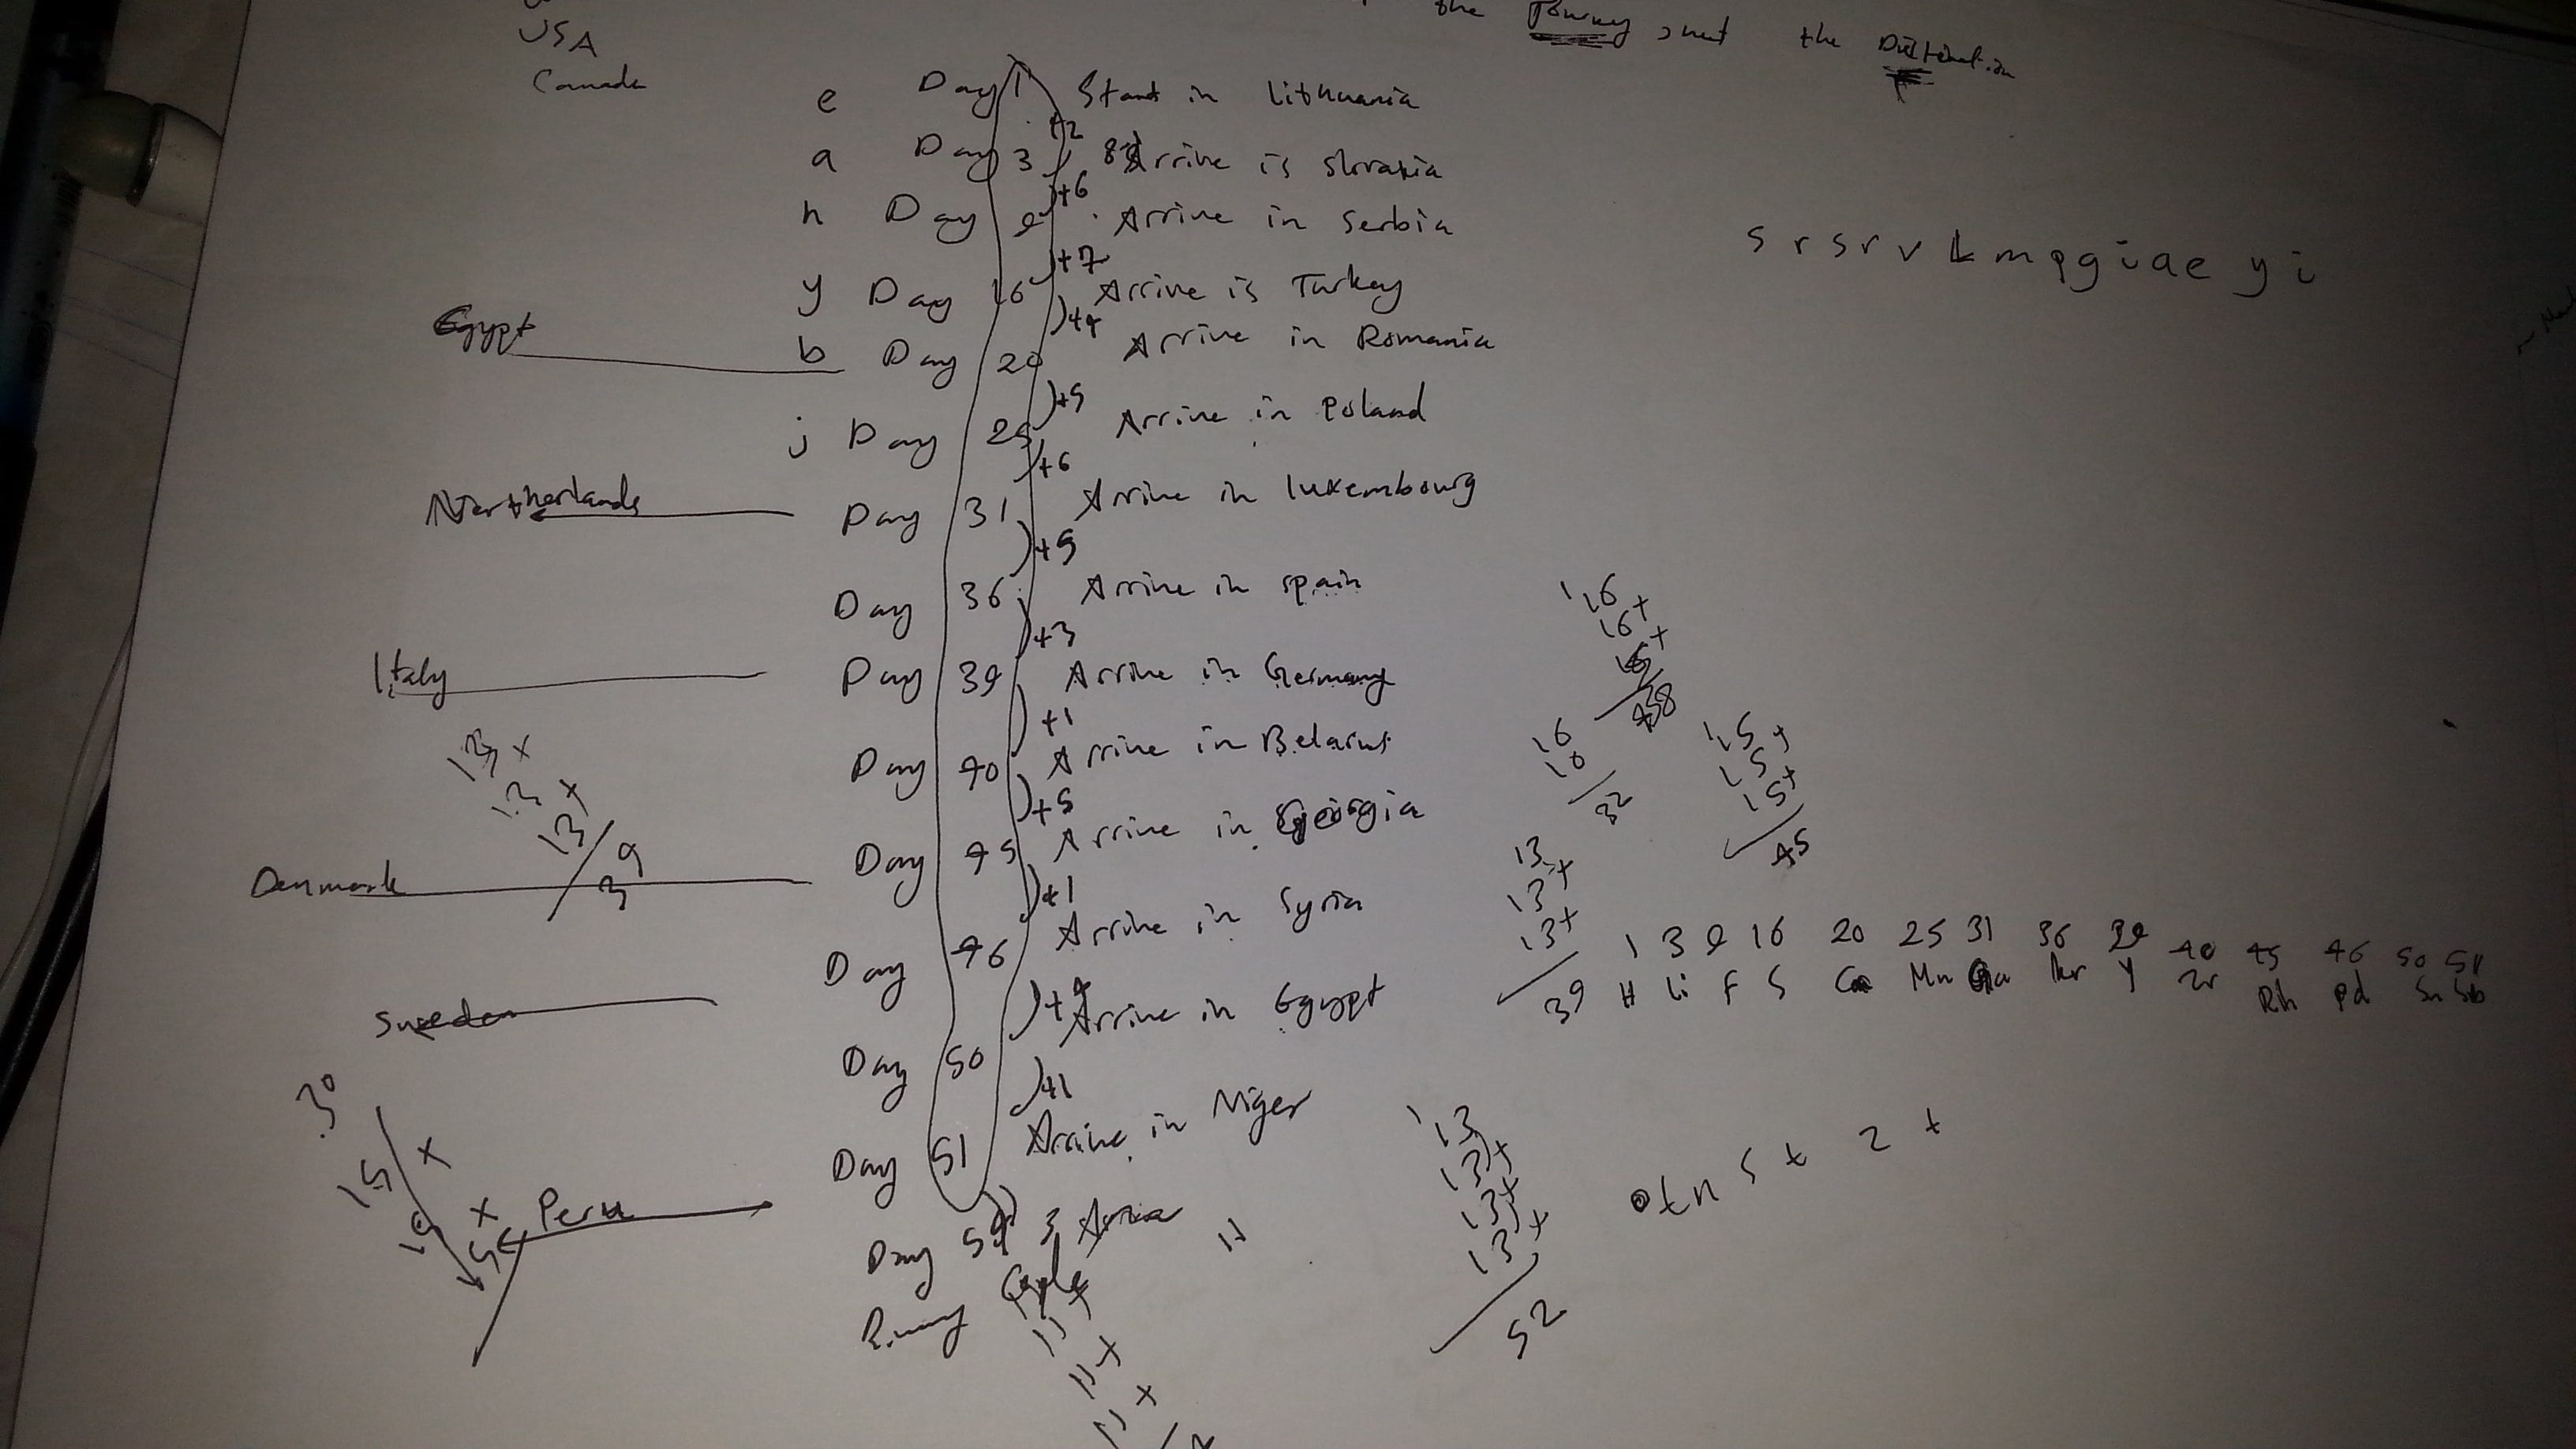 USA
the Journey , not the
Canada
e Day 1 Start in Lithuania
+2
a Day 3 Arrive is Slovakia
+6
n Day 9 Arrive in Serbia
s r s r v k m p g i a e y i
+7
y Day 16 Arrive is Turkey
+4
Egypt
b Day 20 Arrive in Romania
+5
j Day 25 Arrive in Poland
+6
Netherlands
Day 31 Arrive in luxembourg
+5
Day 36 Arrive in Spain
+3
Italy
Day 39 Arrive in Germany
+1
Day 40 Arrive in
+5
Day 45 Arrive in Georgia
+1
Denmark
Day 46 Arrive in Syria
+4
Sweden
Day 50 Arrive in Egypt
+1
Day 51 Arrive in Niger
Peru
Day
16 +
16 +
16
32
15 +
15 +
15 +
45
13 +
13 +
13
39
13 +
13 +
13 +
39
1 3 9 16 20 25 31 36 39 40 45 46 50 51
H Li F S Ca Mn Ga Kr Y Zr Rh Pd Sn Sb
13
13 +
13 +
13 +
52
30
15 +
11
11 +
11 +
11